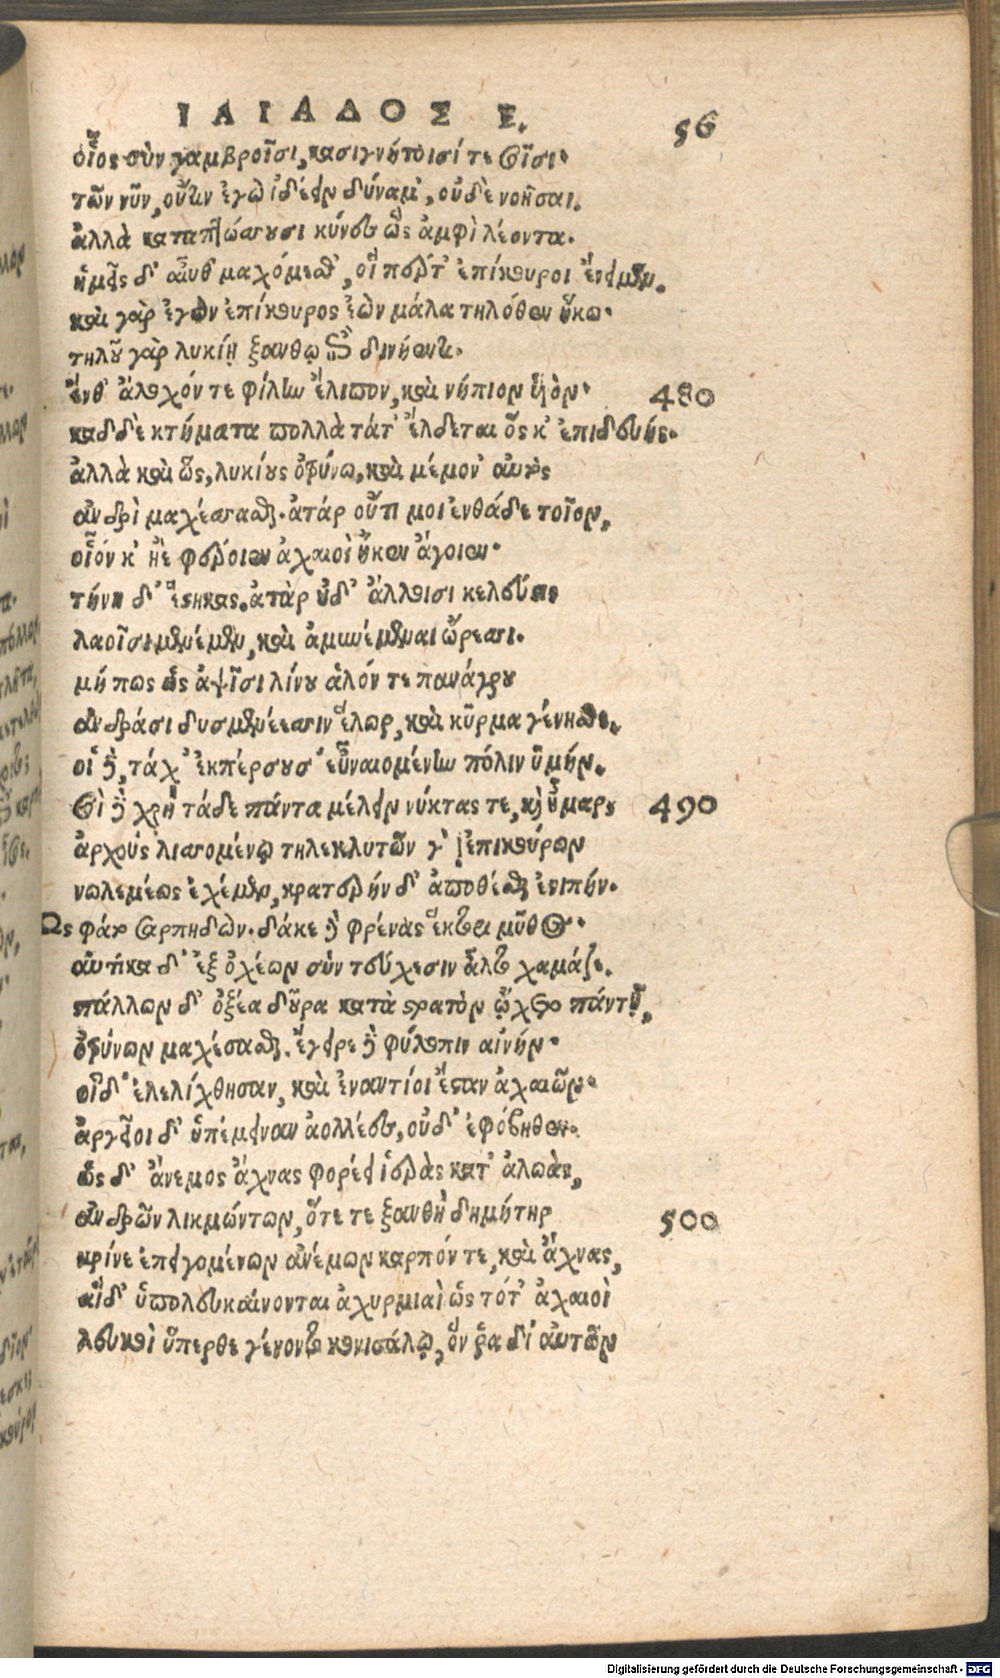 ΙΛΙΑΔΟΣ Ε.
56
οἶος σὺν γαμβροῖσι, κασιγνήτοισί τε σοῖσι·
τῶν νῦν, οὔτιν ἐγὼ ἰδέειν δύναμ', οὐδὲ νοῆσαι.
ἀλλὰ καταπτώσσουσι κύνες ὣς ἀμφὶ λέοντα.
ἡμεῖς δ' αὖθ μαχόμεσθ', οἵ περ τ' ἐπίκουροι ἔνειμεν.
καὶ γὰρ ἐγὼν ἐπίκουρος ἐὼν μάλα τηλόθεν ἥκω·
τηλοῦ γὰρ λυκίη ξανθῳ ἔπι δινήεντι.
ἔνθ' ἄλοχόν τε φίλην ἔλιπον, καὶ νήπιον υἱὸν·
καδδὲ κτήματα πολλὰ τάτ' ἔλδεται ὅς κ' ἐπιδευής.
ἀλλὰ καὶ ὧς, λυκίους ὀτρύνω, καὶ μέμον' αὐτὸς
ἀνδρὶ μαχέσσασθαι. ἀτάρ οὔτι μοι ἐνθάδε τοῖον,
οἷόν κ' ἠὲ φέροιεν ἀχαιοὶ ἤ κεν ἄγοιεν·
τύνη δ' ἕστηκας. ἀτὰρ οὐδ' ἄλλοισι κελεύεις
λαοῖσι μενέμεν, καὶ ἀμυνέμεναι ὤρεσσι.
μή πως ὡς ἁψῖσι λίνου ἁλόν τε πανάγρου
ἀνδράσι δυσμενέεσσιν ἕλωρ, καὶ κῦρμα γένησθε.
οἱ δὲ, τάχ' ἐκπέρσουσ' εὖναιομένην πόλιν ὑμήν.
σοὶ δὲ χρὴ τάδε πάντα μέλειν νύκτας τε, καὶ ἦμαρ
490
ἀρχοὺς λισσομένῳ τηλεκλυτῶν γ' ἐπικούρων
νωλεμέως ἐχέμεν, κρατερὴν δ' ἀποθέσθαι ἐνιπήν.
Ως φάτ σαρπηδὼν. δάκε δὲ φρένας ἕκτορι μῦθος·
αὐτίκα δ' ἐξ ὀχέων σὺν τεύχεσιν ἆλτο χαμάζε.
πάλλων δ' ὀξέα δοῦρα κατὰ στρατὸν ᾤχετο πάντῃ,
ὀτρύνων μαχέσασθαι. ἔγειρε δὲ φύλοπιν αἰνήν·
οἵδ' ἐλελίχθησαν, καὶ ἐναντίοι ἔσταν ἀχαιῶν·
ἀργεῖοι δ' ὑπέμειναν ἀολλέες, οὐδ' ἐφόβηθεν.
ὡς δ' ἄνεμος ἄχνας φορέει ἱερὰς κατ' ἀλωὰς,
ἀνδρῶν λικμώντων, ὅτε τε ξανθὴ δημήτηρ
500
κρίνε ἐπειγομένων ἀνέμων καρπόν τε, καὶ ἄχνας,
αἵδ' ὑπολευκαίνονται ἀχυρμιαὶ ὣς τότ' ἀχαιοὶ
λευκοὶ ὕπερθε γένοντο κονισάλῳ, ὅν ῥα δι' αὐτῶν
480
Digitalisierung gefördert durch die Deutsche Forschungsgemeinschaft - DFG